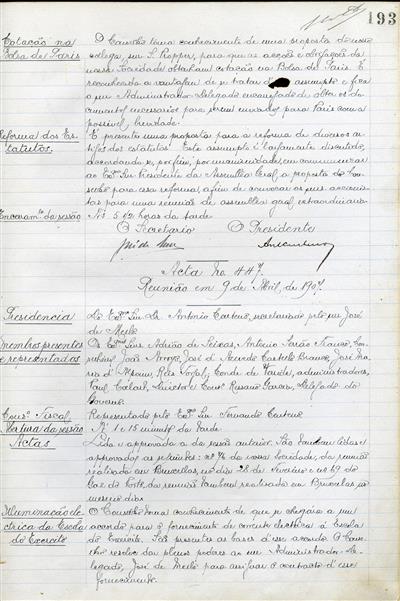 193
Cotação na
Bolsa de Paris
O Conselho toma conhecimento de uma proposta do nosso
collega, snr. S. Propper, para que as acções e obrigações da
nossa Sociedade obtenham cotação na Bolsa de Paris. É
reconhecida a vantagem de se tratar assumpto e fica
o snr. Administrador Delegado encarregado de obter os do-
cumentos necessarios para serem enviados para Paris com a
possivel brevidade.
Reforma dos Es-
tatutos.
É presente uma proposta para a reforma de diversos ar-
tigos dos estatutos. Este assumpto é largamente discutido,
accordando-se, por fim, por unanimidade, em communicar
ao Exmo Snr. Presidente da Assemblea Geral, a proposta do Con-
selho para essa reforma, afim de convocar os snrs. accionis-
tas para uma reunião de assemblea geral extraordinaria.
Encerramto da sessão
Ás 5 1/2 horas da tarde.
O Secretario O Presidente
Acta No 447.
Reunião em 9 de Abril, de 1907.
Presidencia
Do Exmo Snr. Dr. Antonio Centeno, secretariado pelo snr. José
de Mello
Membros presentes
e representados
Os Exmos Snrs. Adrião de Seixas, Antonio
João Arroyo, José d'Azevedo Castello Branco, José Ma-
ria d'Alpoim, Reis Torgal, Conde de administradores,
Paul Director e Consro Rosario Delegado do
Governo.
Conso Fiscal
Representado pelo Exmo Snr. Fernando Centeno
Abertura da sessão
Á 1 e 15 minutos da tarde
Actas
Lida e approvada a da sessão anterior. São tambem lidas e
approvadas as seguintes: da nossa Sociedade, da reunião
realisada em Bruxellas, no dia 28 de Fevereiro e no 69 do
Gaz do Porto, da reunião tambem realisada em Bruxellas, no
mesmo dia.
Illuminação ele-
ctrica da Escola
do Exercito
O Conselho toma conhecimento de que se chegára a um
accordo para o fornecimento de corrente electrica á Escola
do Exercito. São presentes as bases d'esse accordo. O Con-
selho resolve dar plenos poderes ao snr. Administrador De-
legado, José de Mello para assignar o contracto d'esse
fornecimento.